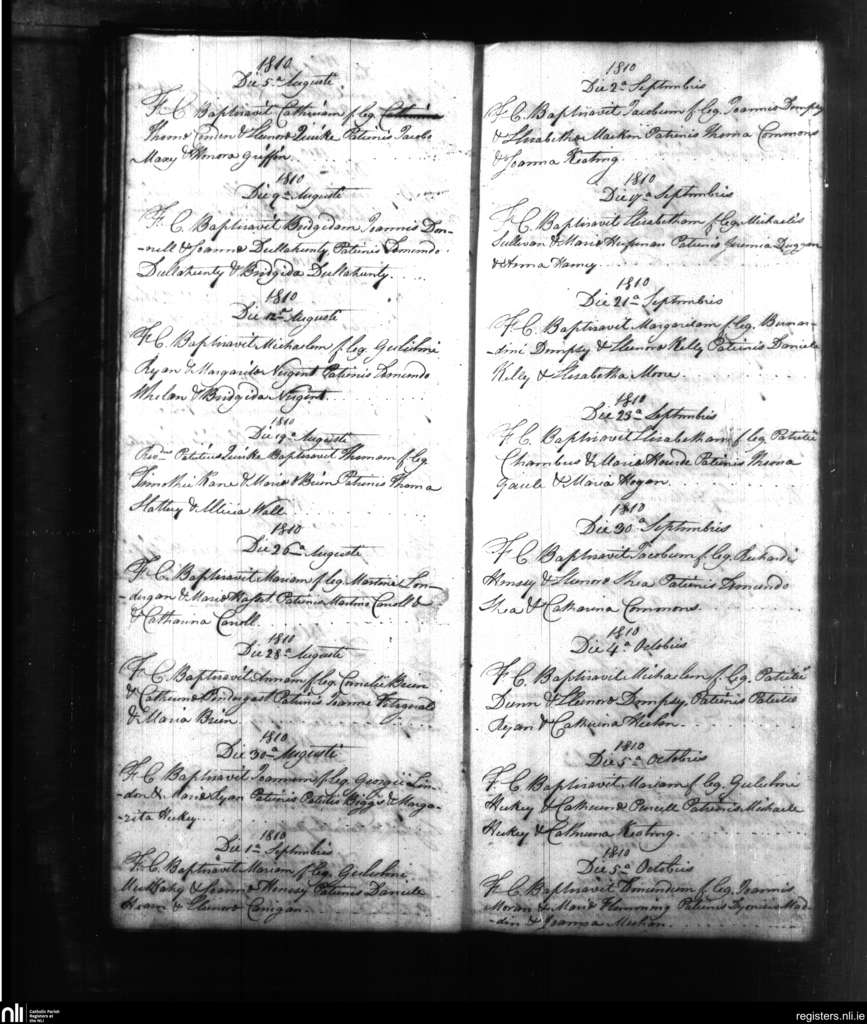 1810
Die 5a Augusti
F. C. Baptisavit Catherinam f. leg.
Thoma & Elenora Quirke Patrinis Jacobo
Mary & Honora Griffin
1810
Die 9a Augusti
F. C. Baptisavit Bridgidam Joannis Don-
-nell & Joanna Dullahunty Patrinis Edmundo
Dullahunty & Bridgida Dullahunty.
1810
Die 12a Augusti
F. C. Baptisavit Michaelem f. leg. Gulielmi
Ryan & Margarita Nugent Patrinis Edmundo
Whelan & Bridgida Nugent.
1810
Die 19a Augusti
Patritius Quirke Baptisavit Thomam f. leg.
Timothei Kane & Maria Brien Patrinis Thoma
Slattery & Alicia Wall
1810
Die 26a Augusti
F. C. Baptisavit Mariam f. leg. Martini Lon-
-dregan & Maria Patrinis Martino Carroll &
& Catharina Carroll.
1810
Die 28a Augusti
F. C. Baptisavit Annam f. leg. Cornelii Brien
& Catherina Prendergast Patrinis Fitzgerald
& Maria Brien.
1810
Die 30a Augusti
F. C. Baptisavit Joannem f. leg. Georgii Lin-
-don & Maria Ryan Patrinis Patritio Biggs & Marga-
-rita Hickey
1810
Die 1a Septembris
F. C. Baptisavit Mariam f. leg. Gulielmi
& Joanna Henessy Patrinis Daniele
& Elenora Corrigan
1810
Die 2a Septembris
F. C. Baptisavit Jacobum f. leg. Joannis Dempsy
& Elisabetha Mackin Patrinis Thoma Commons
& Joanna Keating
1810
Die 9a Septembris
F. C. Baptisavit Elisabetham f. leg. Michaelis
Sullivan & Maria Heffernan Patrinis Duggan
& Anna Haney
1810
Die 21a Septembris
F. C. Baptisavit Margaritam f. leg. Bernar-
-dini Dempsy & Elenora Kelly Patrinis Daniele
Kelly & Elisabetha More.
1810
Die 23a Septembris
F. C. Baptisavit Elisabetham f. leg. Patritii
Chambers & Maria Patrinis Thoma
Gaule & Maria Hogan.
1810
Die 30a Septembris
F. C. Baptisavit Jacobum f. leg. Richardi
Hensey & Elenora Shea Patrinis Edmundo
Shea & Catharina Commons.
1810
Die 4a Octobris
F. C. Baptisavit Michaelem f. leg. Patritii
Dunn & Elenora Dempsy Patrinis Patritio
Ryan & Catherina
1810
Die 5a Octobris
F. C. Baptisavit Mariam f. leg. Gulielmi
Hickey & Catherina Purcell Patrinis Michaele
Hickey & Catherina Keating.
1810
Die 5a Octobris
F. C. Baptisavit Edmundum f. leg. Joannis
Moran & Maria Flemming Patrinis Dyonisio Mad-
-din & Joanna Meehan.
nli
Catholic Parish
Registers at
the NLI
registers.nli.ie